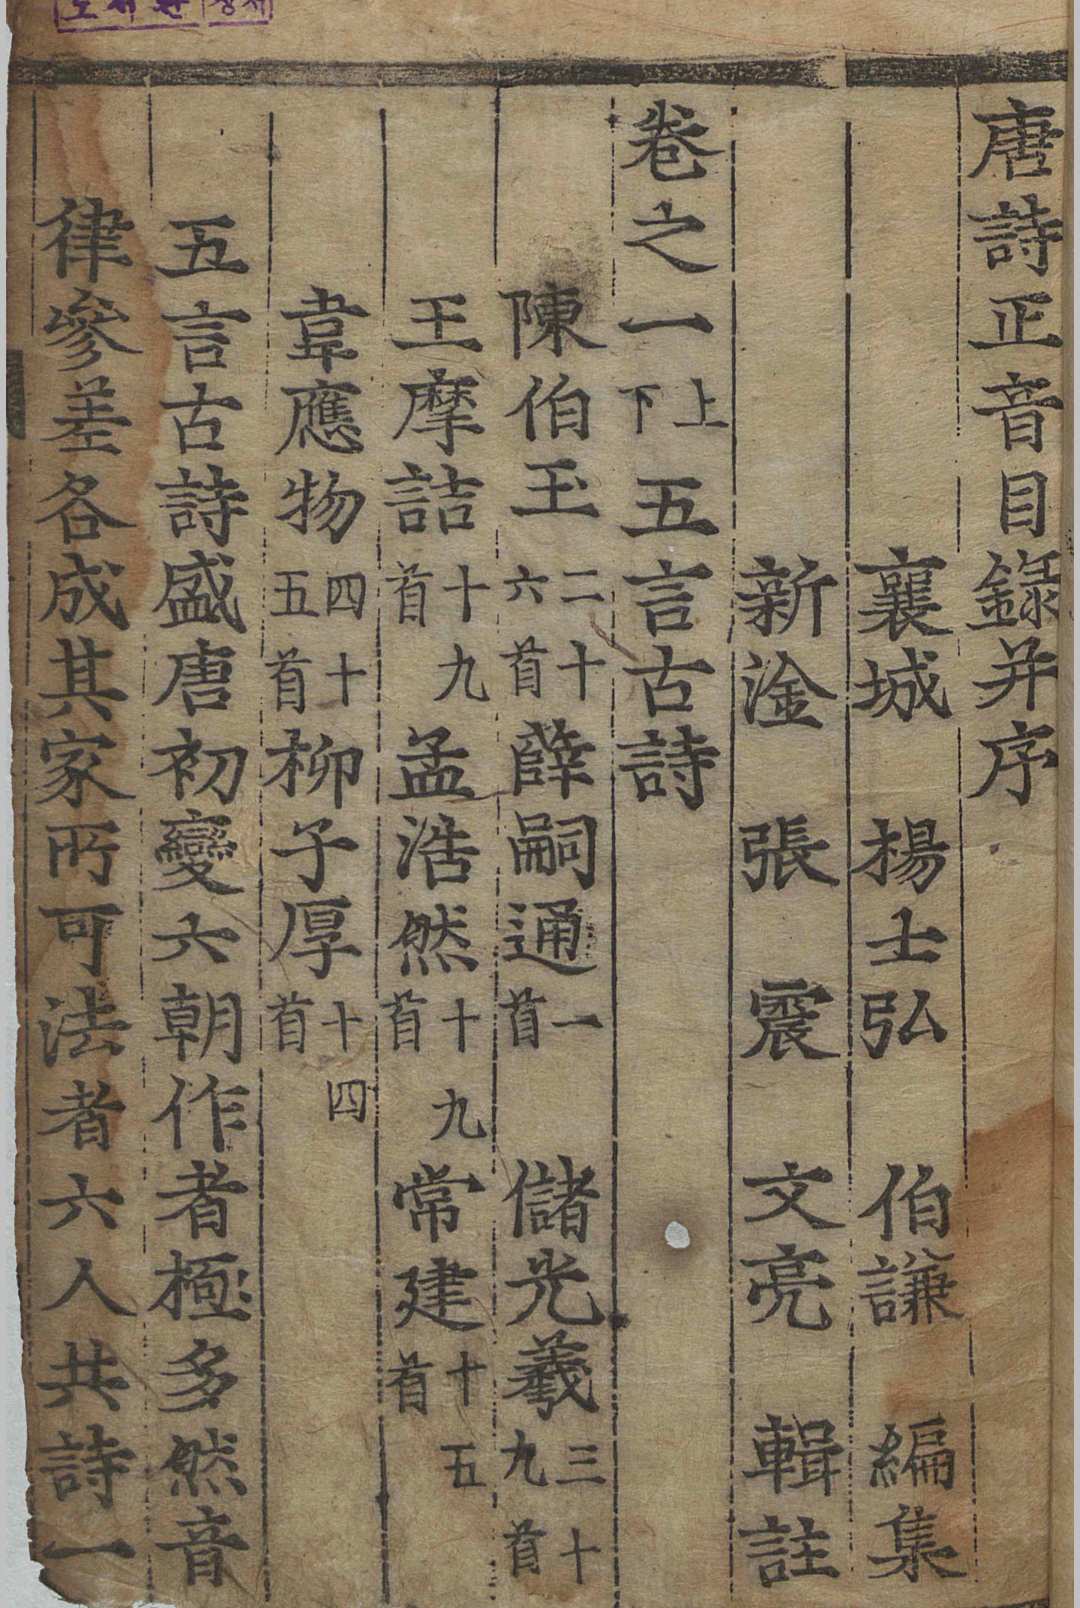 唐詩正音目錄并序
襄城 楊士弘 伯謙 編集
新淦 張震 文亮 輯註
卷之一上下 五言古詩
陳伯玉二十六首 薛嗣通一首 儲光羲三十九首
王摩詰十九首 孟浩然十九首 常建十五首
韋應物四十五首 柳子厚十四首
五言古詩盛唐初變六朝作者極多然音
律參差各成其家所可法者六人共詩一